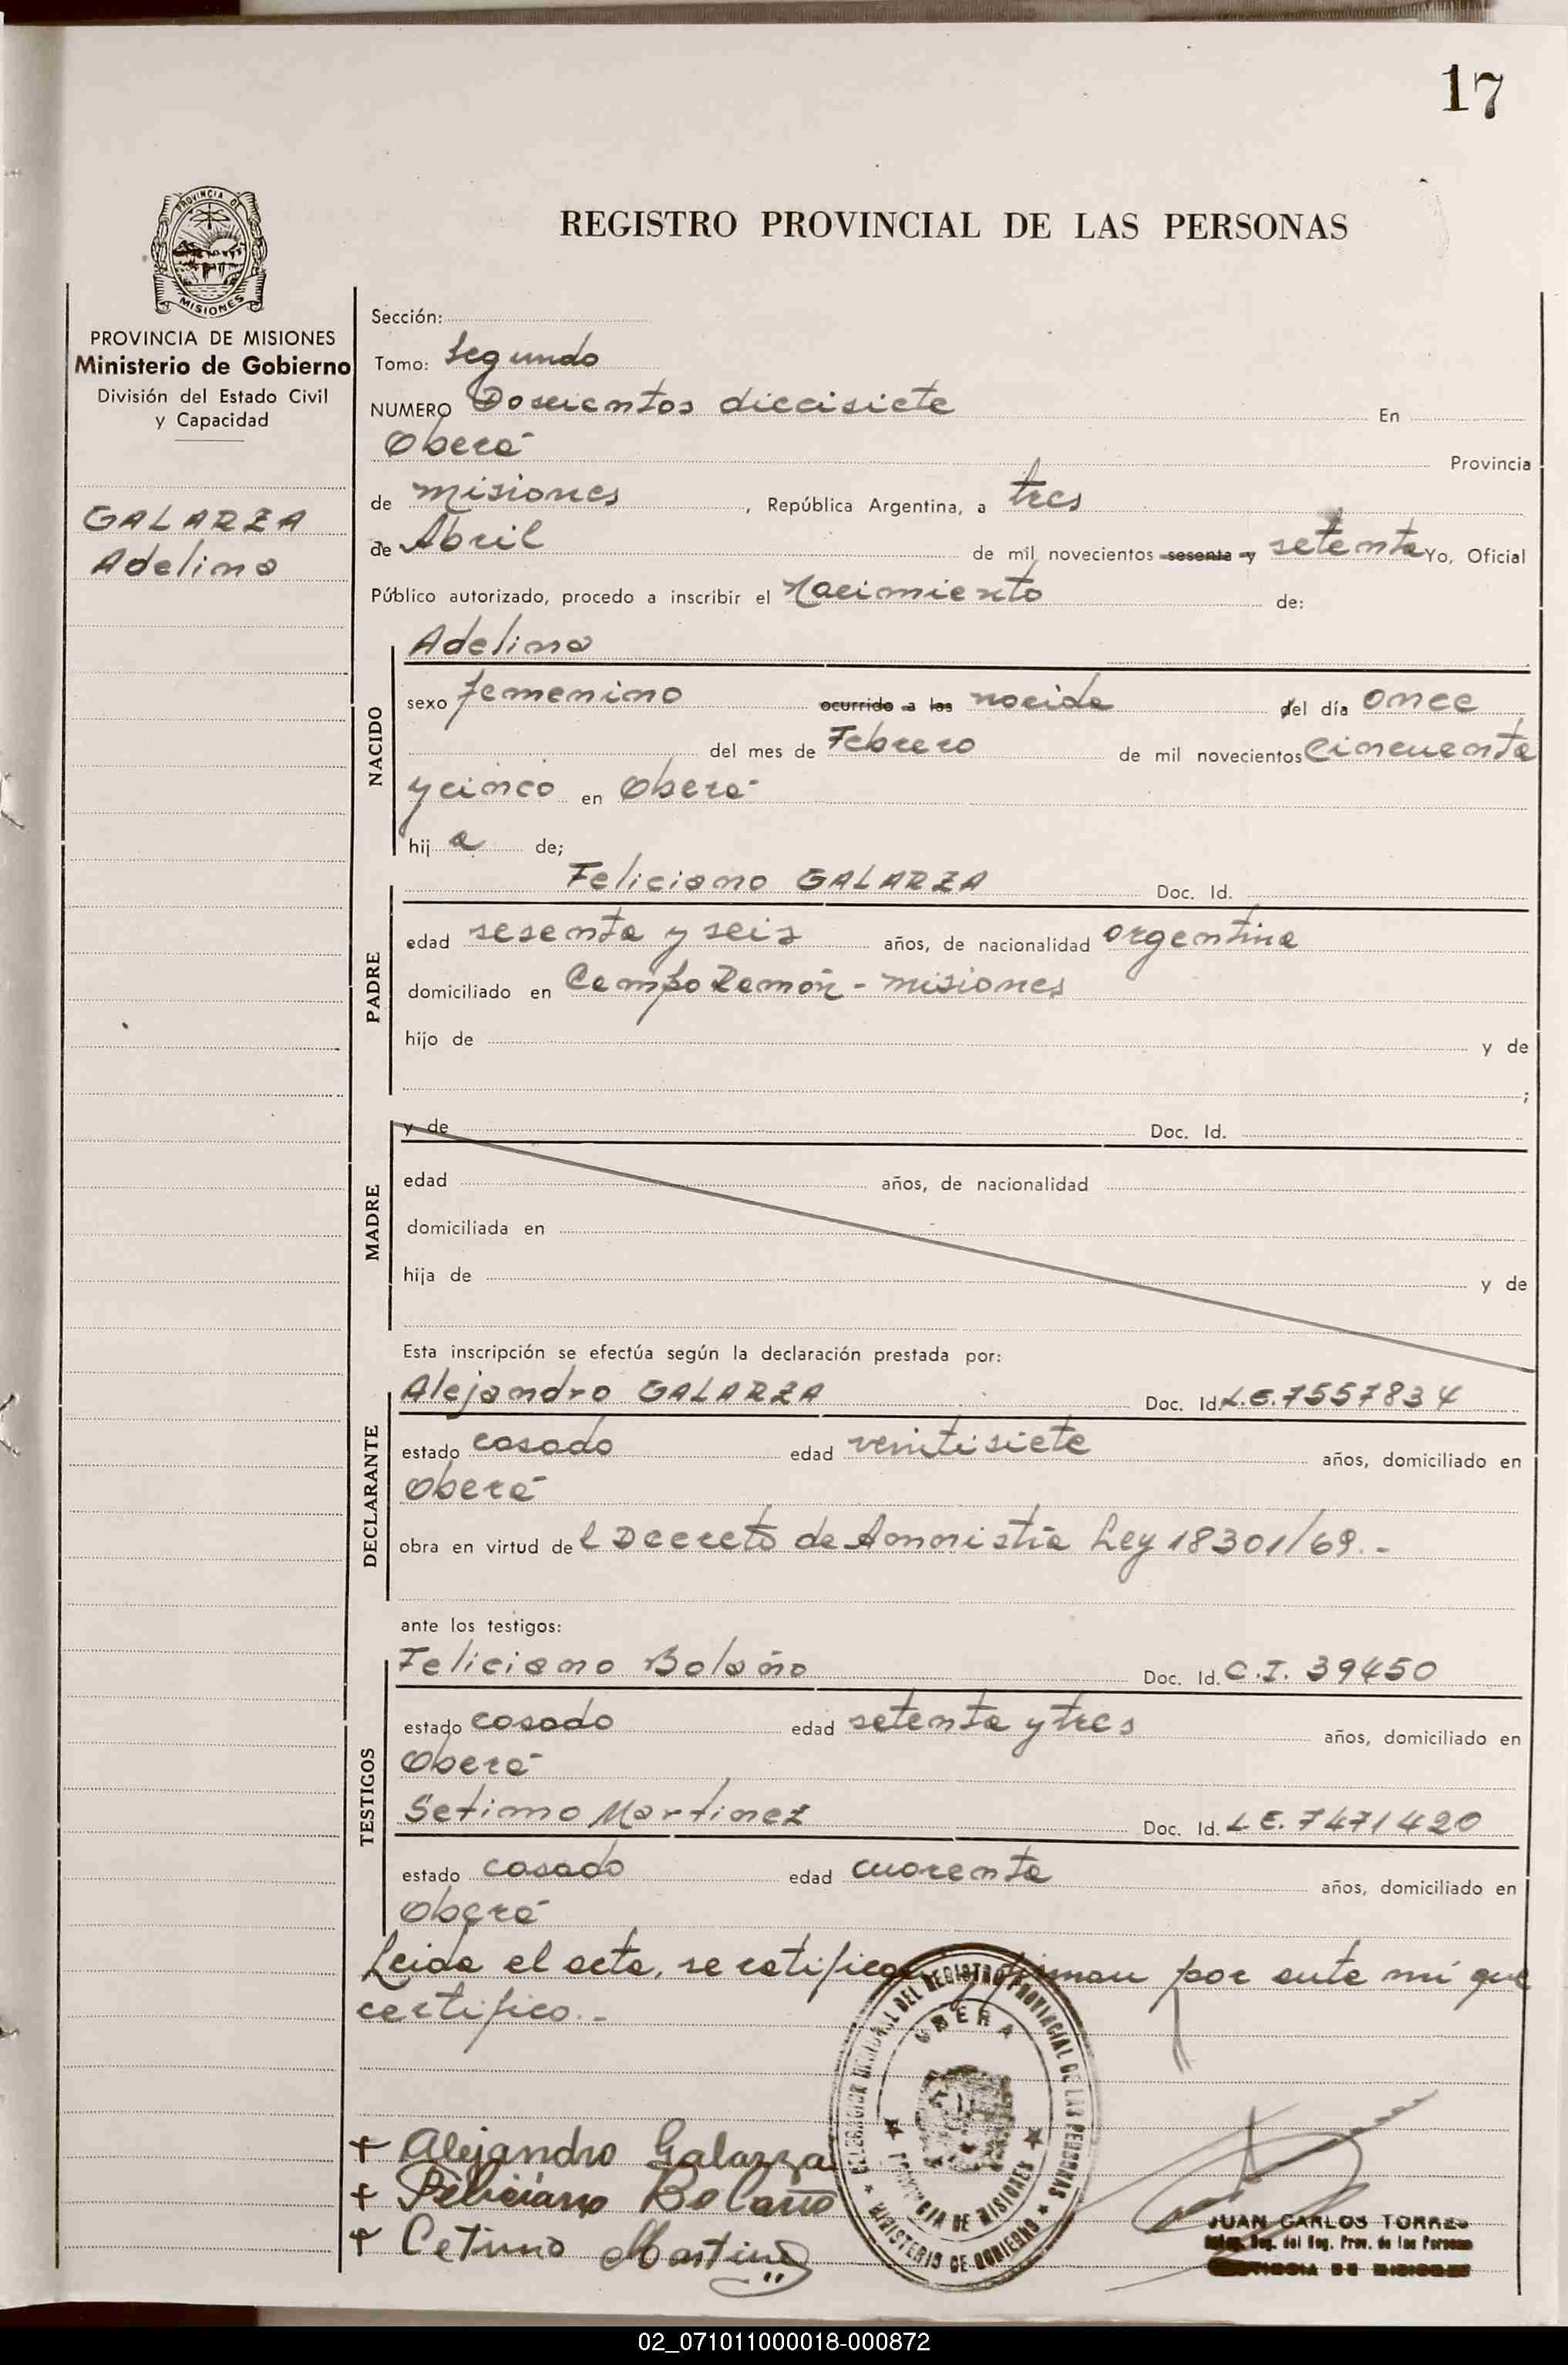 17
PROVINCIA DE
MISIONES
REGISTRO PROVINCIAL DE LAS PERSONAS
PROVINCIA DE MISIONES
Ministerio de Gobierno
División del Estado Civil
y Capacidad
GALARZA
Adelina
Sección:
Tomo: Segundo
NUMERO Doscientos diecisiete En
Oberá Provincia
de Misiones, República Argentina, a tres
de Abril de mil novecientos sesenta y setenta Yo, Oficial
Público autorizado, procedo a inscribir el Nacimiento de:
NACIDO
Adelina
sexo femenino ocurrido a las nacida del día once
del mes de Febrero de mil novecientos cincuenta
y cinco en Oberá
hij a de;
PADRE
Feliciano GALARZA Doc. Id.
edad sesenta y seis años, de nacionalidad argentina
domiciliado en Campo Ramón - Misiones
hijo de y de
;
MADRE
y de Doc. Id.
edad años, de nacionalidad
domiciliada en
hija de y de
Esta inscripción se efectúa según la declaración prestada por:
DECLARANTE
Alejandro GALARZA Doc. Id. L.E. 7557834
estado casado edad veintisiete años, domiciliado en
Oberá
obra en virtud del Decreto de Amnistía Ley 18301/69.-
ante los testigos:
TESTIGOS
Feliciano Bolaño Doc. Id. C.I. 39450
estado casado edad setenta y tres años, domiciliado en
Oberá
Setimo Martinez Doc. Id. L E. 7471420
estado casado edad cuarenta años, domiciliado en
Oberá
Leida el acta, se ratifican y firman por ante mi que
certifico.-
DELEGACION DEL REGISTRO PROVINCIAL DE LAS PERSONAS
OBERA
PROVINCIA DE MISIONES
MINISTERIO DE GOBIERNO
+ Alejandro Galarza
+ Feliciano Bolaño
+ Cetimo Martinez
JUAN CARLOS TORRES
del Reg. Prov. de las Personas
PROVINCIA DE MISIONES
02_071011000018-000872